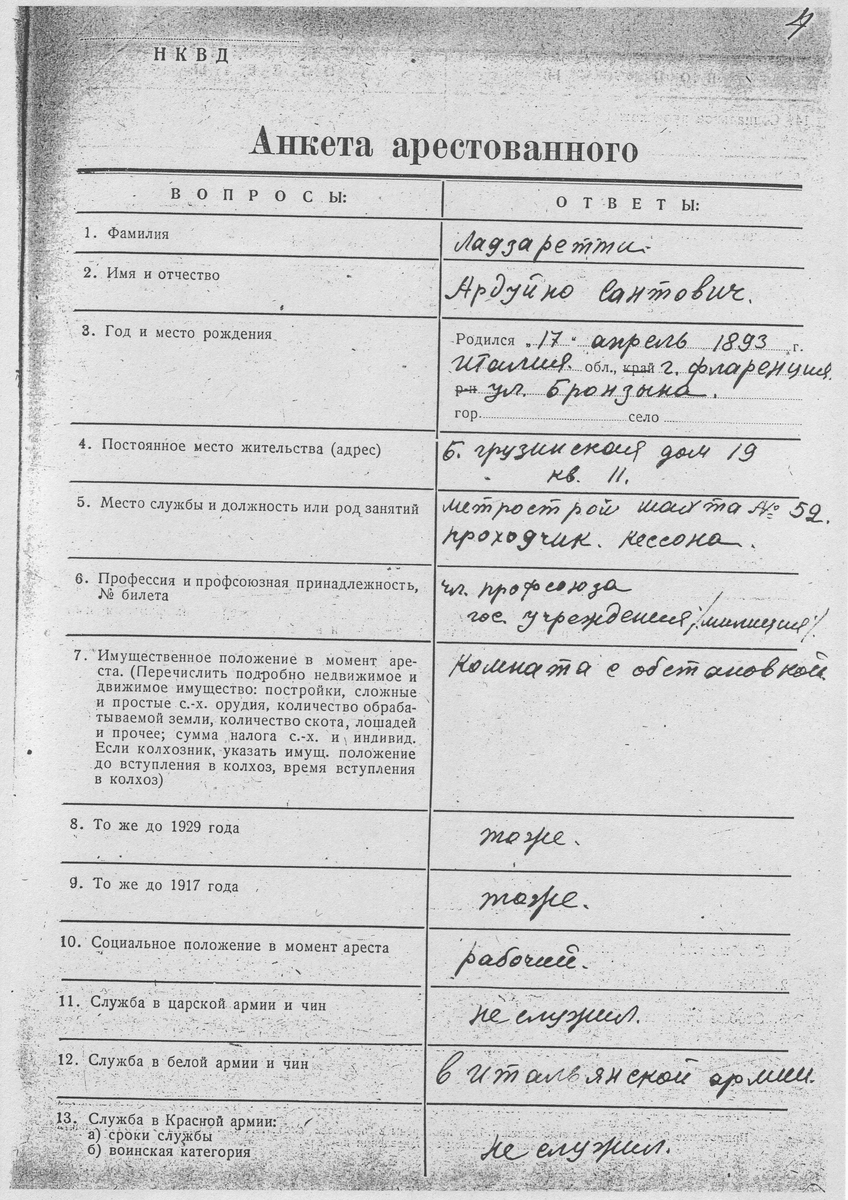 4
НКВД
Анкета арестованного
ВОПРОСЫ:
ОТВЕТЫ:
1. Фамилия
Ладзаретти.
2. Имя и отчество
Ардуйно Сантович.
3. Год и место рождения
Родился „17" апрель 1893 г.
Италия. обл., край г. Фларенция.
р-н ул. Бронзына.
гор. село
4. Постоянное место жительства (адрес)
Б. Грузинская дом 19
кв. 11.
5. Место службы и должность или род занятий
метрострой шахта № 52.
проходчик. кессона.
6. Профессия и профсоюзная принадлежность,
№ билета
чл. профсоюза
гос. учреждения /милиция/.
7. Имущественное положение в момент аре-
ста. (Перечислить подробно недвижимое и
движимое имущество: постройки, сложные
и простые с.-х. орудия, количество обраба-
тываемой земли, количество скота, лошадей
и прочее; сумма налога с.-х. и индивид.
Если колхозник, указать имущ. положение
до вступления в колхоз, время вступления
в колхоз)
Комната с обстановкой
8. То же до 1929 года
тоже.
9. То же до 1917 года
тоже.
10. Социальное положение в момент ареста
рабочий.
11. Служба в царской армии и чин
не служил.
12. Служба в белой армии и чин
в итальянской армии.
13. Служба в Красной армии:
а) сроки службы
б) воинская категория
не служил.